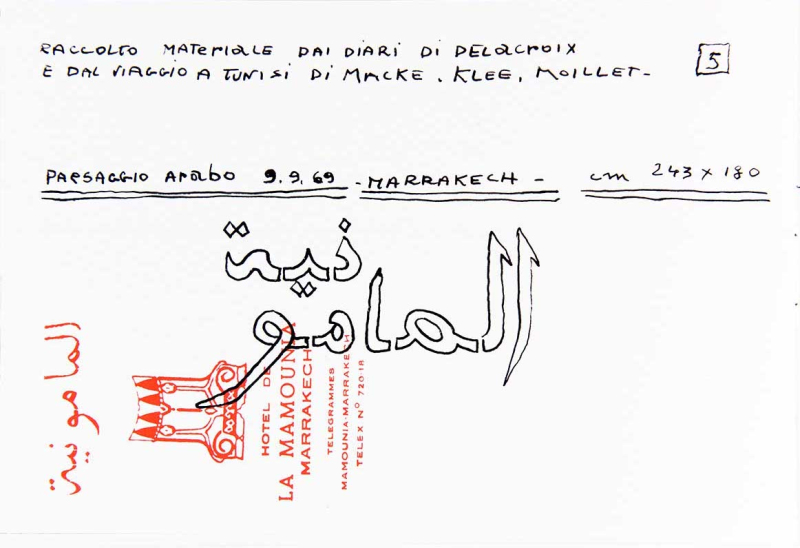 RACCOLTO MATERIALE DAI DIARI DI DELACROIX
E DAL VIAGGIO A TUNISI DI MACKE. KLEE, MOILLET-
5
PAESAGGIO ArAbo 9.9.69 -MARRAKECH- cm 243 x 180
المامو
نية
المامونية
HOTEL DE
LA MAMOUNIA
MARRAKECH
TELEGRAMMES
MAMOUNIA-MARRAKECH
TELEX Nº 720-18